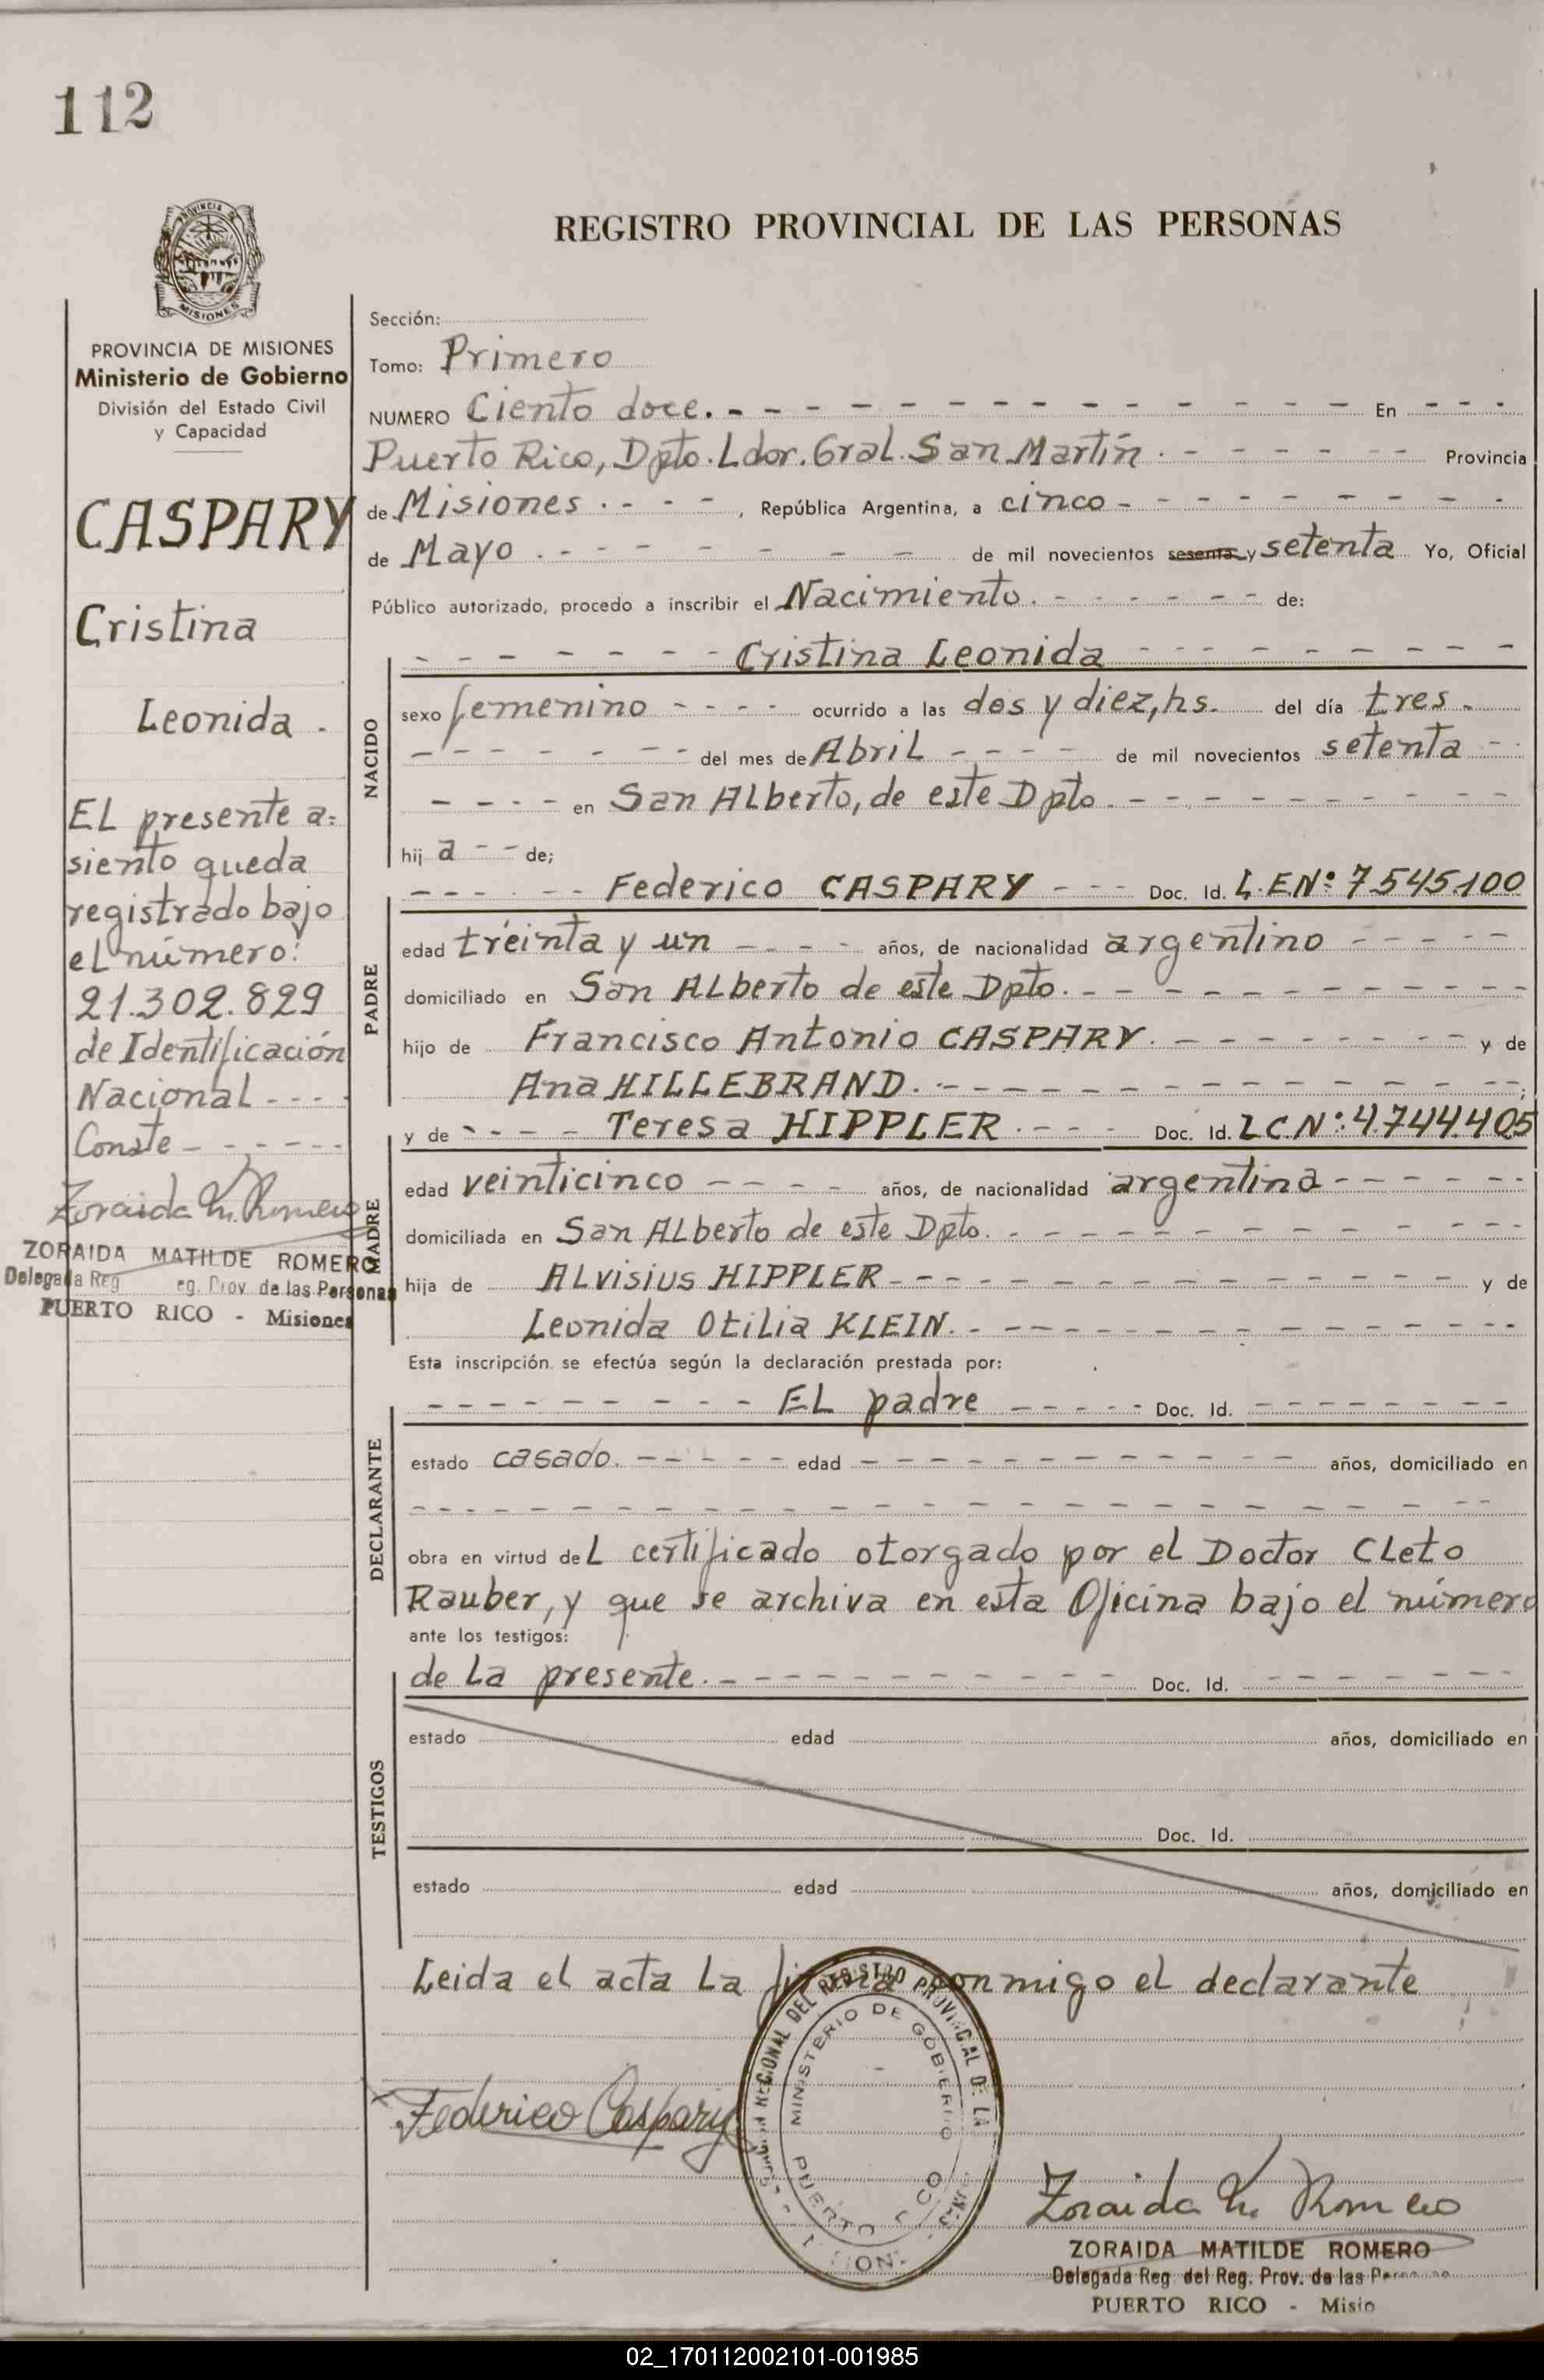 112
PROVINCIA DE
MISIONES
REGISTRO PROVINCIAL DE LAS PERSONAS
PROVINCIA DE MISIONES
Ministerio de Gobierno
División del Estado Civil
y Capacidad
CASPARY
Cristina
Leonida .
EL presente a=
siento queda
registrado bajo
el número:
21.302.829
de Identificación
Nacional - - - -
Conste - - - - - -
Zoraida M. Romero
ZORAIDA MATILDE ROMERO
Delegada Reg eg. Prov de las Personas
PUERTO RICO - Misiones
Sección:
Tomo: Primero
NUMERO Ciento doce. - - - - - - - - - - - - - En - - -
Puerto Rico, Dpto. Ldor. Gral. San Martín . - - - - - - Provincia
de Misiones . - - - , República Argentina, a cinco - - - - - - - - - -
de Mayo . - - - - - - - de mil novecientos sesenta y setenta Yo, Oficial
Público autorizado, procedo a inscribir el Nacimiento. - - - - - - de:
- - - - - - - - Cristina Leonida - - - - - - - - - -
NACIDO
sexo femenino - - - - ocurrido a las dos y diez, hs. del día tres -
- - - - - - - - del mes de Abril - - - - de mil novecientos setenta - -
- - - - en San Alberto, de este Dpto. - - - - - - - - - -
hij a - - de;
- - - - - - Federico CASPARY - - - Doc. Id. L.E Nº 7.545.100
PADRE
edad treinta y un - - - - años, de nacionalidad argentino - - - - -
domiciliado en San Alberto de este Dpto. - - - - - - - - - - -
hijo de Francisco Antonio CASPARY. - - - - - - - - y de
Ana HILLEBRAND. - - - - - - - - - - - - - - ;
y de - - - - Teresa HIPPLER . - - - Doc. Id. L C. Nº: 4.744.405
MADRE
edad veinticinco - - - - años, de nacionalidad argentina - - - - - -
domiciliada en San Alberto de este Dpto. - - - - - - - - - - - -
hija de ALvisius HIPPLER - - - - - - - - - - - - - y de
Leonida Otilia KLEIN. - - - - - - - - - - - - - -
Esta inscripción se efectúa según la declaración prestada por:
- - - - - - - - - EL padre - - - - - Doc. Id. - - - - - - - -
DECLARANTE
estado casado. - - - - - edad - - - - - - - - - - - - años, domiciliado en
- - - - - - - - - - - - - - - - - - - - - - - -
obra en virtud de L certificado otorgado por el Doctor Cleto
Rauber, y que se archiva en esta Oficina bajo el número
ante los testigos:
de La presente. - - - - - - - - - - - Doc. Id. - - - - - - -
TESTIGOS
estado edad años, domiciliado en
Doc. Id.
estado edad años, domiciliado en
Leida el acta La firma conmigo el declarante
REGIONAL DEL REGISTRO PROVINCIAL DE LA
MINISTERIO DE GOBIERNO
PUERTO
Federico Caspary
Zoraida M. Romero
ZORAIDA MATILDE ROMERO
Delegada Reg. del Reg. Prov. de las
PUERTO RICO - Misio
02_170112002101-001985